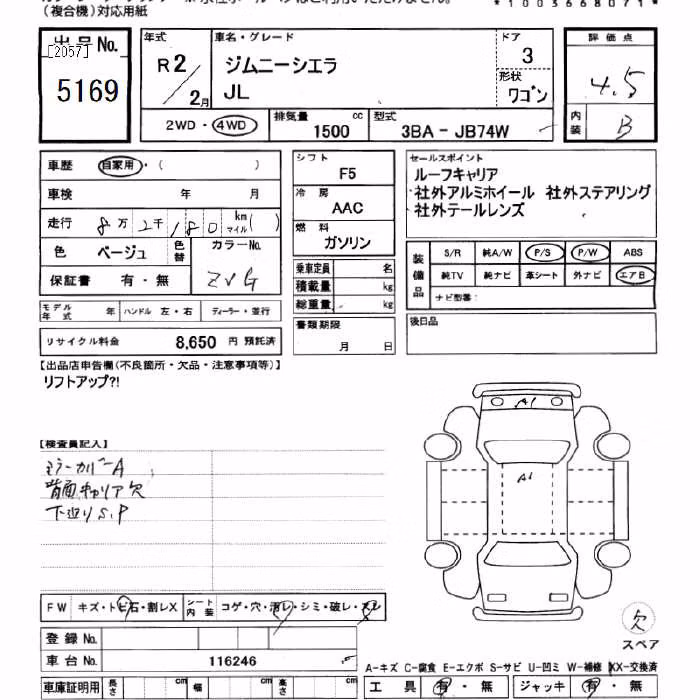 (複合機)対応用紙
*1003668071*
出品No.
[2057]
5169
年式
R2/2月
車名・グレード
ジムニーシエラ
JL
ドア
3
形状
ワゴン
評価点
4.5
内装
B
2WD・4WD
排気量
1500 cc
型式
3BA - JB74W
車歴 自家用・( )
車検 年 月
走行 8万2千180 km マイル( )
色 ベージュ
色替
カラーNo.
ZVG
保証書 有・無
シフト
F5
冷房
AAC
燃料
ガソリン
セールスポイント
ルーフキャリア
社外アルミホイール 社外ステアリング
社外テールレンズ
乗車定員 名
積載量 kg
総重量 kg
装備品
S/R 純A/W P/S P/W ABS
純TV 純ナビ 革シート 外ナビ エアB
ナビ型番:
モデル年式 年 ハンドル 左・右 ディーラー・並行
リサイクル料金 8,650 円 預託済
書類期限
月 日
後日品
【出品店申告欄(不良箇所・欠品・注意事項等)】
リフトアップ?!
【検査員記入】
ミラーカバーA
背面キャリア欠
下廻りS.P
A1
A1
FW キズ・トビ石・割レX
シート内装 コゲ・穴・汚レ・シミ・破レ・スレ
登録No.
車台No. 116246
車庫証明用 長さ cm 幅 cm 高さ cm
欠
スペア
A-キズ C-腐食 E-エクボ S-サビ U-凹ミ W-補修 XX-交換済
工具 有・無 ジャッキ 有・無